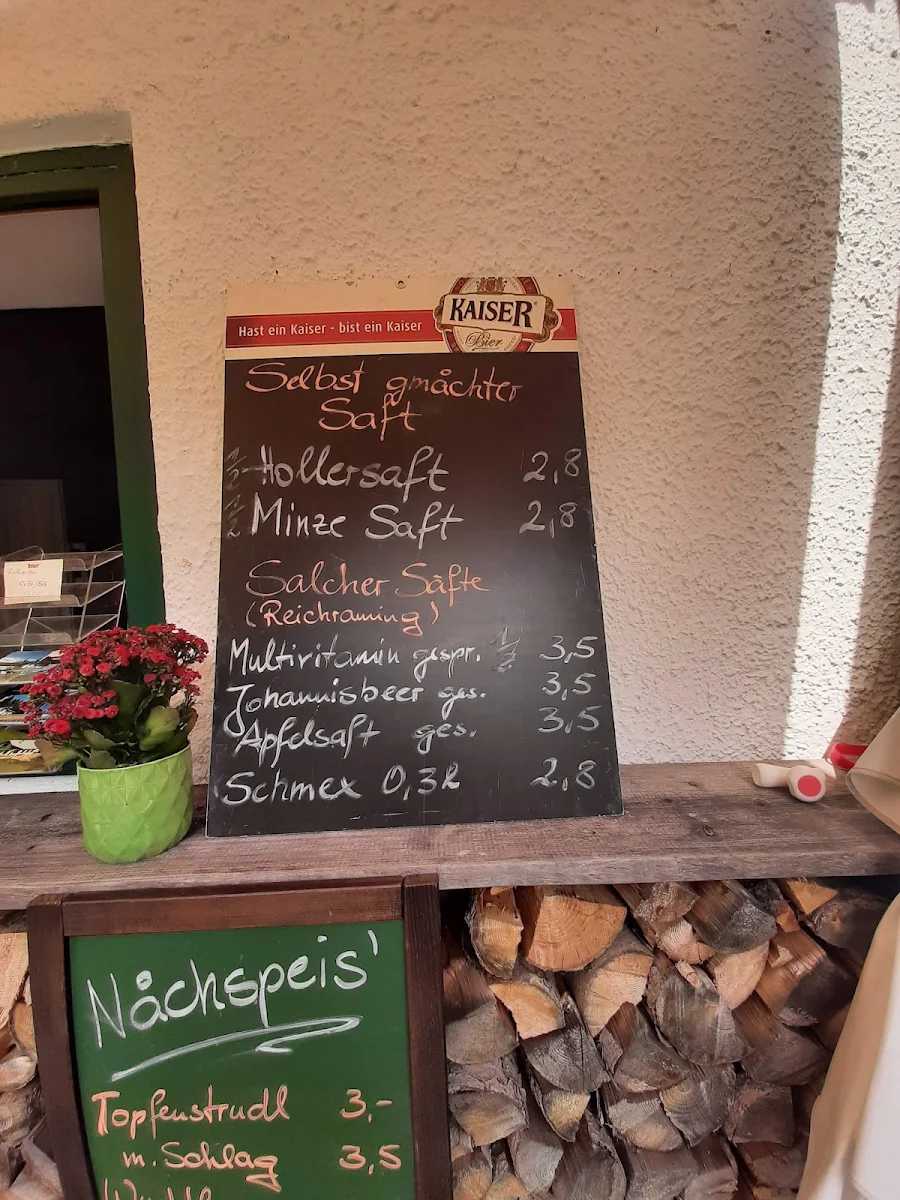 Hast ein Kaiser - bist ein Kaiser
KAISER
Bier
Selbst gmåchter
Saft
1/2 Hollersaft 2,8
1/2 Minze Saft 2,8
Salcher Säfte
(Reichraming)
Multivitamin gespr. 1/2 3,5
Johannisbeer ges. 3,5
Apfelsaft ges. 3,5
Schmex 0,3l 2,8
Nåchspeis'
Topfenstrudl 3,-
m. Schlag 3,5